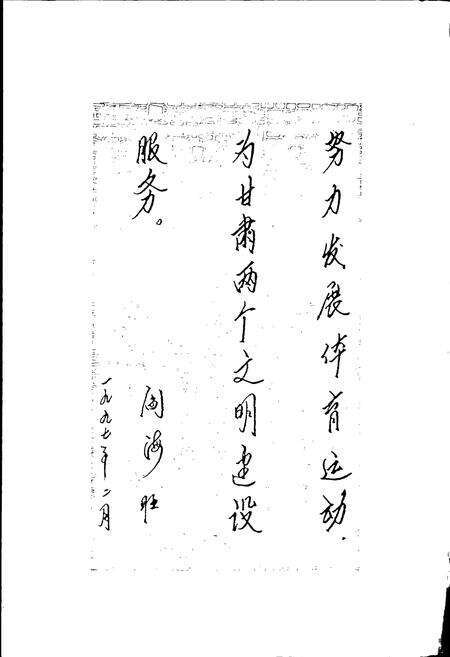 努力发展体育运动.
为甘肃两个文明建设
服务。
阎海旺
一九九七年二月